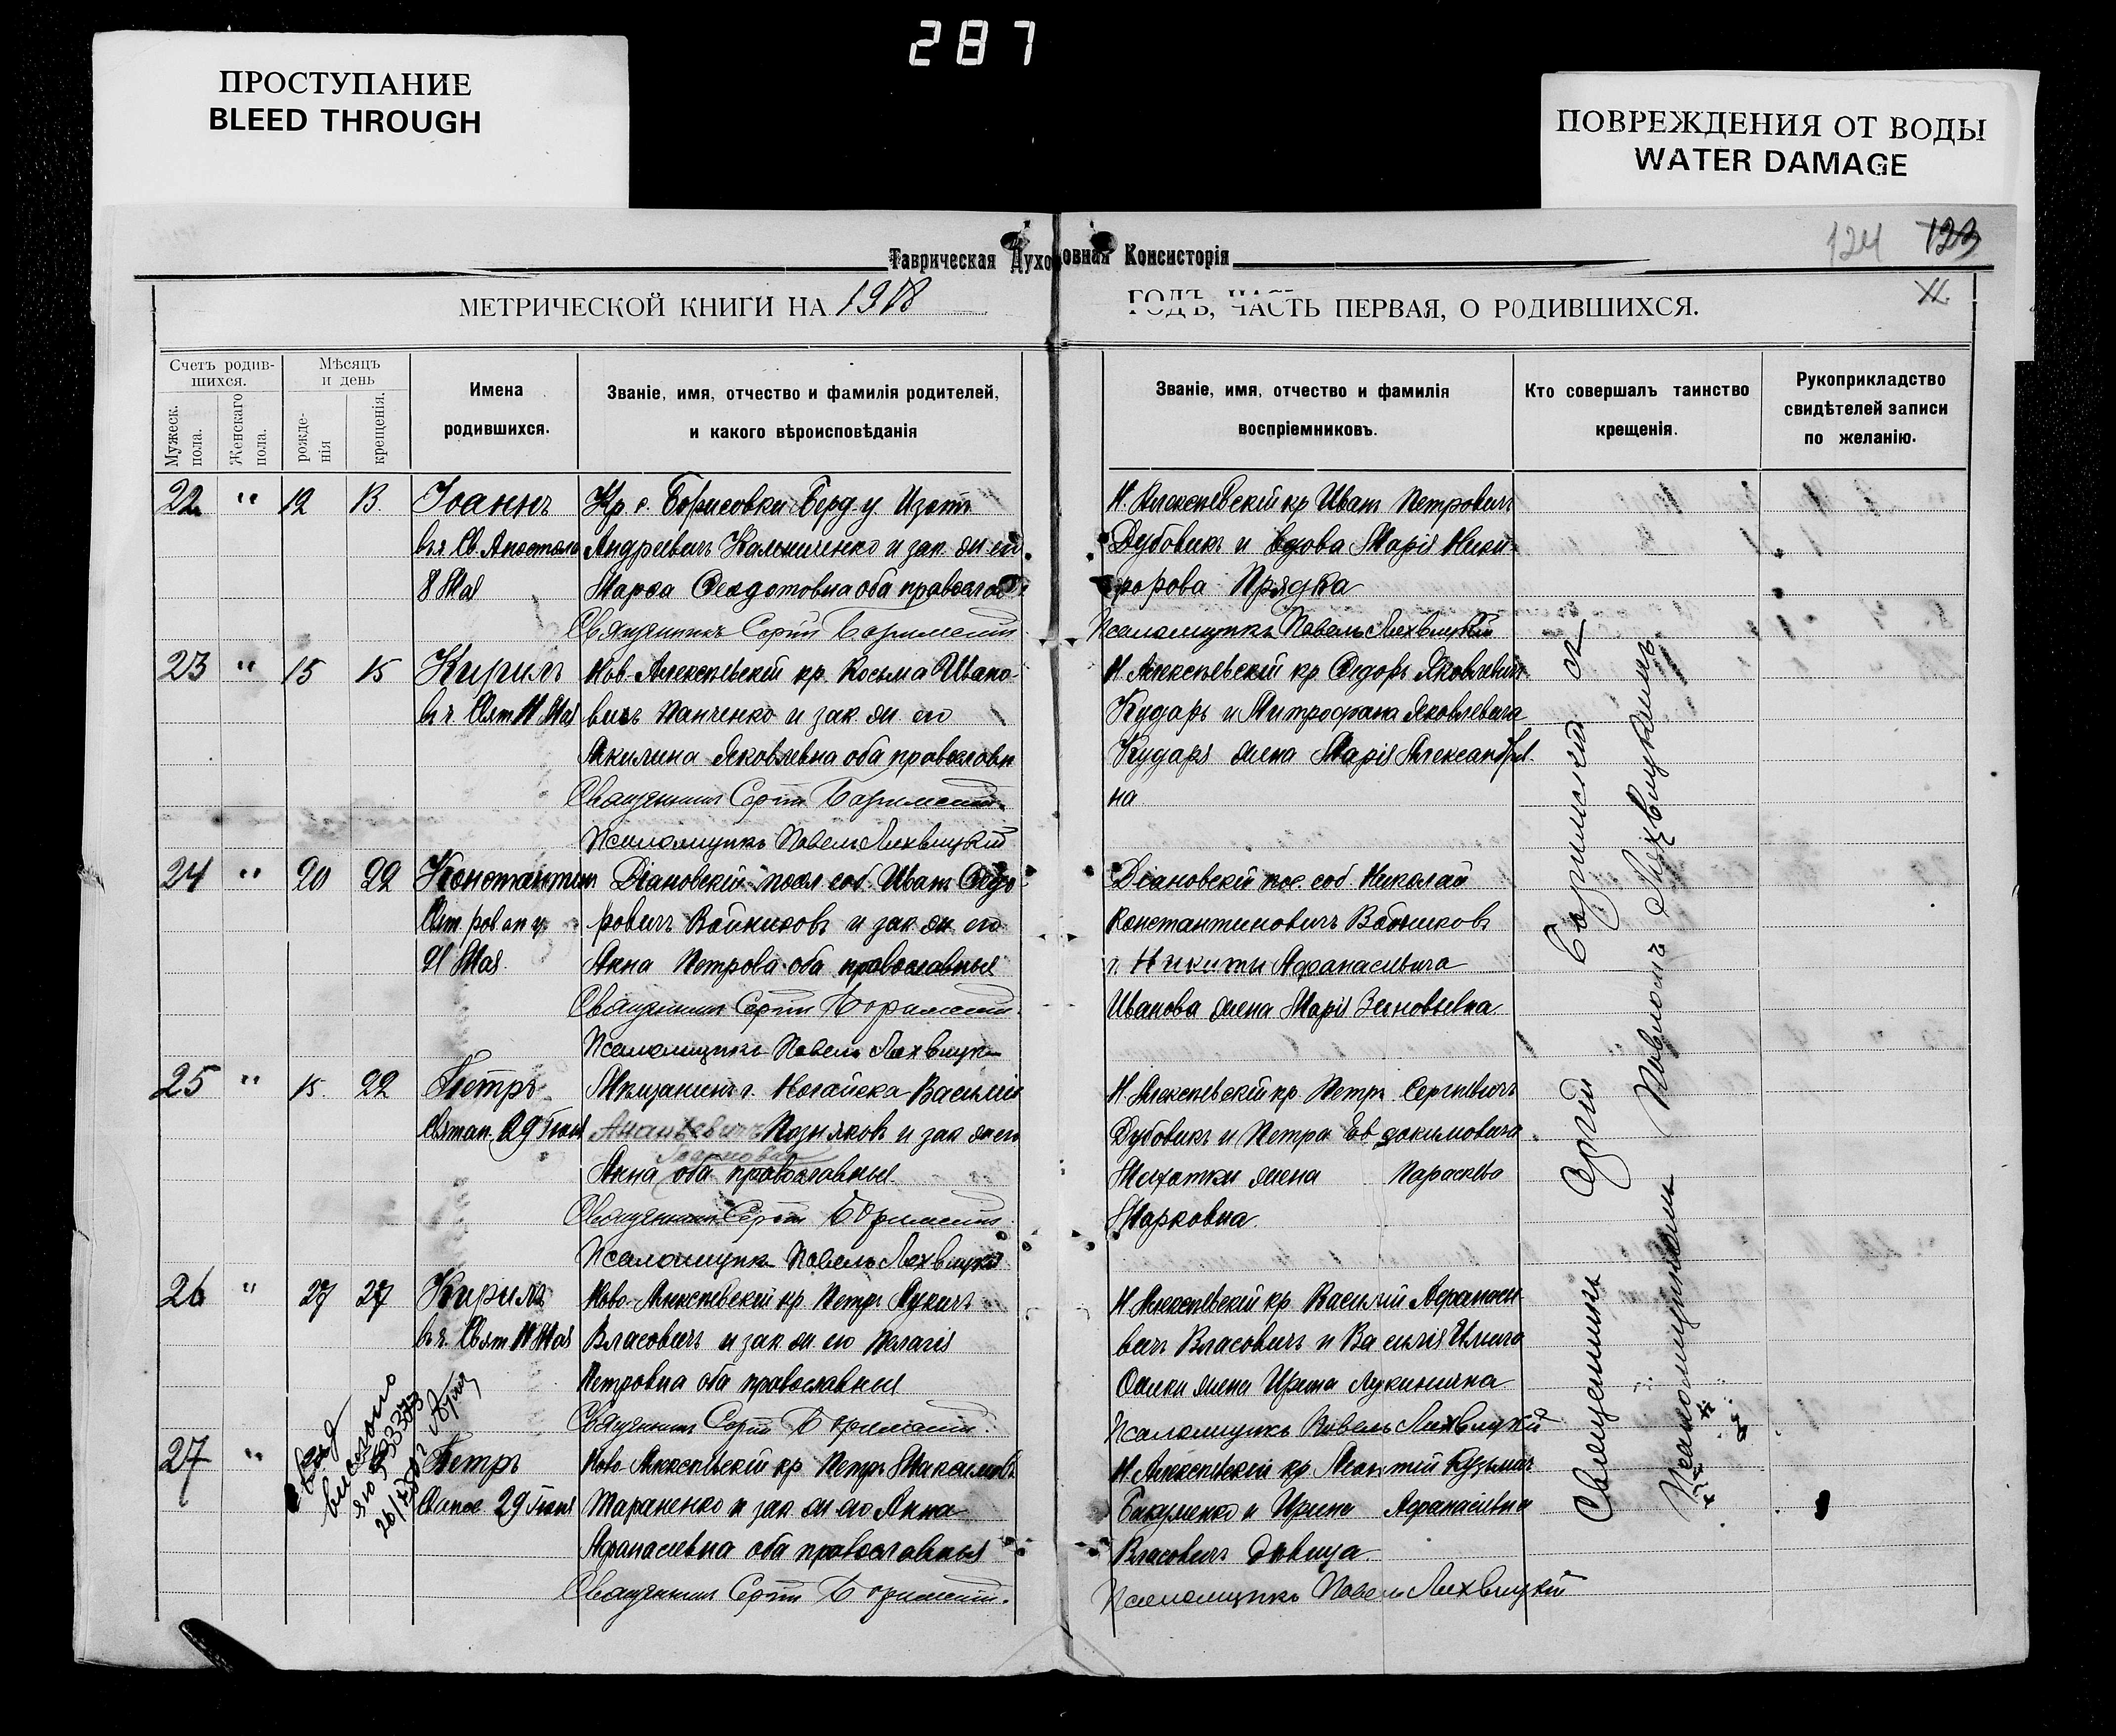 287
ПРОСТУПАНИЕ
BLEED THROUGH
ПОВРЕЖДЕНИЯ ОТ ВОДЫ
WATER DAMAGE
124 123
Таврическая Духовная Консисторія
МЕТРИЧЕСКОЙ КНИГИ НА 1918 ГОДЪ, ЧАСТЬ ПЕРВАЯ, О РОДИВШИХСЯ.
Счетъ родив-
шихся.
Мужеск. пола.
Женскаго пола.
Мѣсяцъ
и день
рожде-
нія
крещенія.
Имена
родившихся.
Званіе, имя, отчество и фамилія родителей,
и какого вѣроисповѣданія
Званіе, имя, отчество и фамилія
воспріемниковъ.
Кто совершалъ таинство
крещенія.
Рукоприкладство
свидѣтелей записи
по желанію.
22 " 12 13. Іоаннъ
8 Мая
Кр. с. Борисовки Берд. у Изотъ
Андреевичъ Кальниченко и зак. ж. его
Марѳа Ѳеодотовна оба православ
Священникъ Сергій
Н. Алексѣевскій кр Иванъ Петровичъ
Дубовикъ и вдова Марія Ники-
форова Прядка
Псаломщикъ Павелъ Лихвицкій
23 " 15 15 Кирилъ
Свят 11 Мая
Нов. Алексѣевскій кр. Косьма Ивано-
вичъ Панченко и зак. ж. его
Акилина Яковлевна оба православн
Священникъ Сергій
Псаломщикъ Павелъ Лихвицкій
Н. Алексѣевскій кр Ѳедоръ Яковлевичъ
Кударь и Митрофана Яковлевича
Кударя жена Марія Александров.
на
24 " 20 22 Константин
21 Мая.
Діановскій пос. соб. Иванъ Ѳедо-
ровичъ Войниковъ и зак. ж. его
Анна Петрова оба православные
Священникъ Сергій
Псаломщикъ Павелъ Лихвицк
Діановскій пос. соб. Николай
Константиновичъ Войниковъ
Никиты Афанасьевича
Иванова жена Марія Зиновьевна
25 " 15. 22 Петръ
29 Іюня
Мѣщанинъ г. Ногайска Василій
Ананьевичъ Позняковъ и зак жена
Анна оба православные
Священникъ Сергій
Псаломщикъ Павелъ Лихвицкій
Н. Алексѣевскій кр. Петръ Сергѣевичъ
Дубовикъ и Петра Евдокимовича
жена Параскева
Марковна
26 " 27 27 Кирилъ
Свят 11 Мая
Ново-Алексѣевскій кр Петръ Лукичъ
Власовичъ и зак ж. его Пелагія
Петровна оба православные
Священникъ Сергій
Н. Алексѣевскій кр Василій Афанасье
вичъ Власовичъ и Василія Ильича
жена Ирина Лукинична
Псаломщикъ Павелъ Лихвицкій
27 " Петръ
29 Іюня
Ново-Алексѣевскій кр Петръ Максимовъ
Тараненко и зак ж. его Анна
Афанасіевна оба православные
Священникъ Сергій
Н. Алексѣевскій кр Леонтій Кузьмич
Бакуменко и Ирина Афанасіевна
Власовичъ дѣвица
Псаломщикъ Павелъ Лихвицкій
Священникъ Сергій
Псаломщикомъ Павломъ Лихвицкимъ